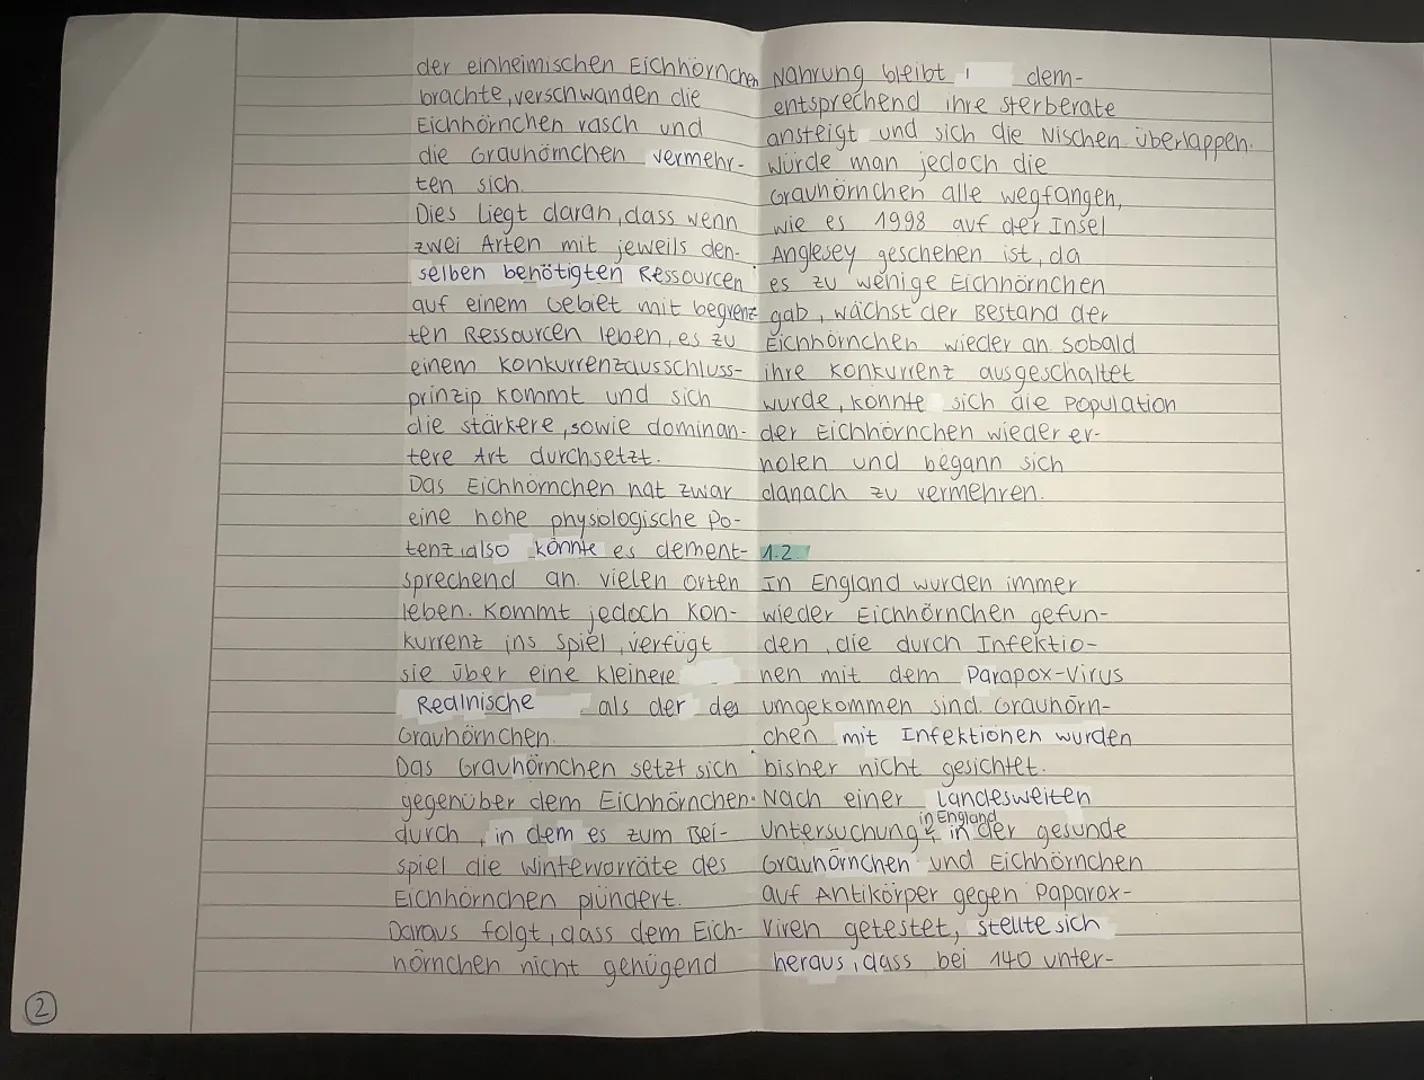 der einheimischen Eichhörnchen
brachte, verschwanden die
Eichhörnchen rasch und
die Grauhörnchen vermehr-
ten sich.
Dies liegt daran, dass wenn
zwei Arten mit jeweils den-
selben benötigten Ressourcen
auf einem Gebiet mit begrenz
ten Ressourcen leben, es zu
einem Konkurrenzausschluss-
prinzip kommt und sich
die stärkere, sowie dominan-
tere Art durchsetzt.
Das Eichhörnchen hat zwar
eine hohe physiologische Po-
tenz, also könnte es dement-
sprechend an vielen Orten
leben. Kommt jedoch Kon-
kurrenz ins Spiel, verfügt
sie über eine kleinere
Realnische als der des
Grauhörnchen.
Das Grauhörnchen setzt sich
gegenüber dem Eichhörnchen
durch, in dem es zum Bei-
spiel die Wintervorräte des
Eichhörnchen plündert.
Daraus folgt, dass dem Eich-
hörnchen nicht genügend
Nahrung bleibt, dem-
entsprechend ihre Sterberate
ansteigt und sich die Nischen überlappen.
Würde man jedoch die
Grauhörnchen alle wegfangen,
wie es 1998 auf der Insel
Anglesey geschehen ist, da
es zu wenige Eichhörnchen
gab, wächst der Bestand der
Eichhörnchen wieder an. Sobald
ihre Konkurrenz ausgeschaltet
wurde, konnte sich die Population
der Eichhörnchen wieder er-
holen und begann sich
danach zu vermehren.
1.2.
In England wurden immer
wieder Eichhörnchen gefun-
den, die durch Infektio-
nen mit dem Parapox-Virus
umgekommen sind. Grauhörn-
chen mit Infektionen wurden
bisher nicht gesichtet.
Nach einer landesweiten
Untersuchung in England, in der gesunde
Grauhörnchen und Eichhörnchen
auf Antikörper gegen Paparox-
Viren getestet, stellte sich
heraus, dass bei 140 unter-
2